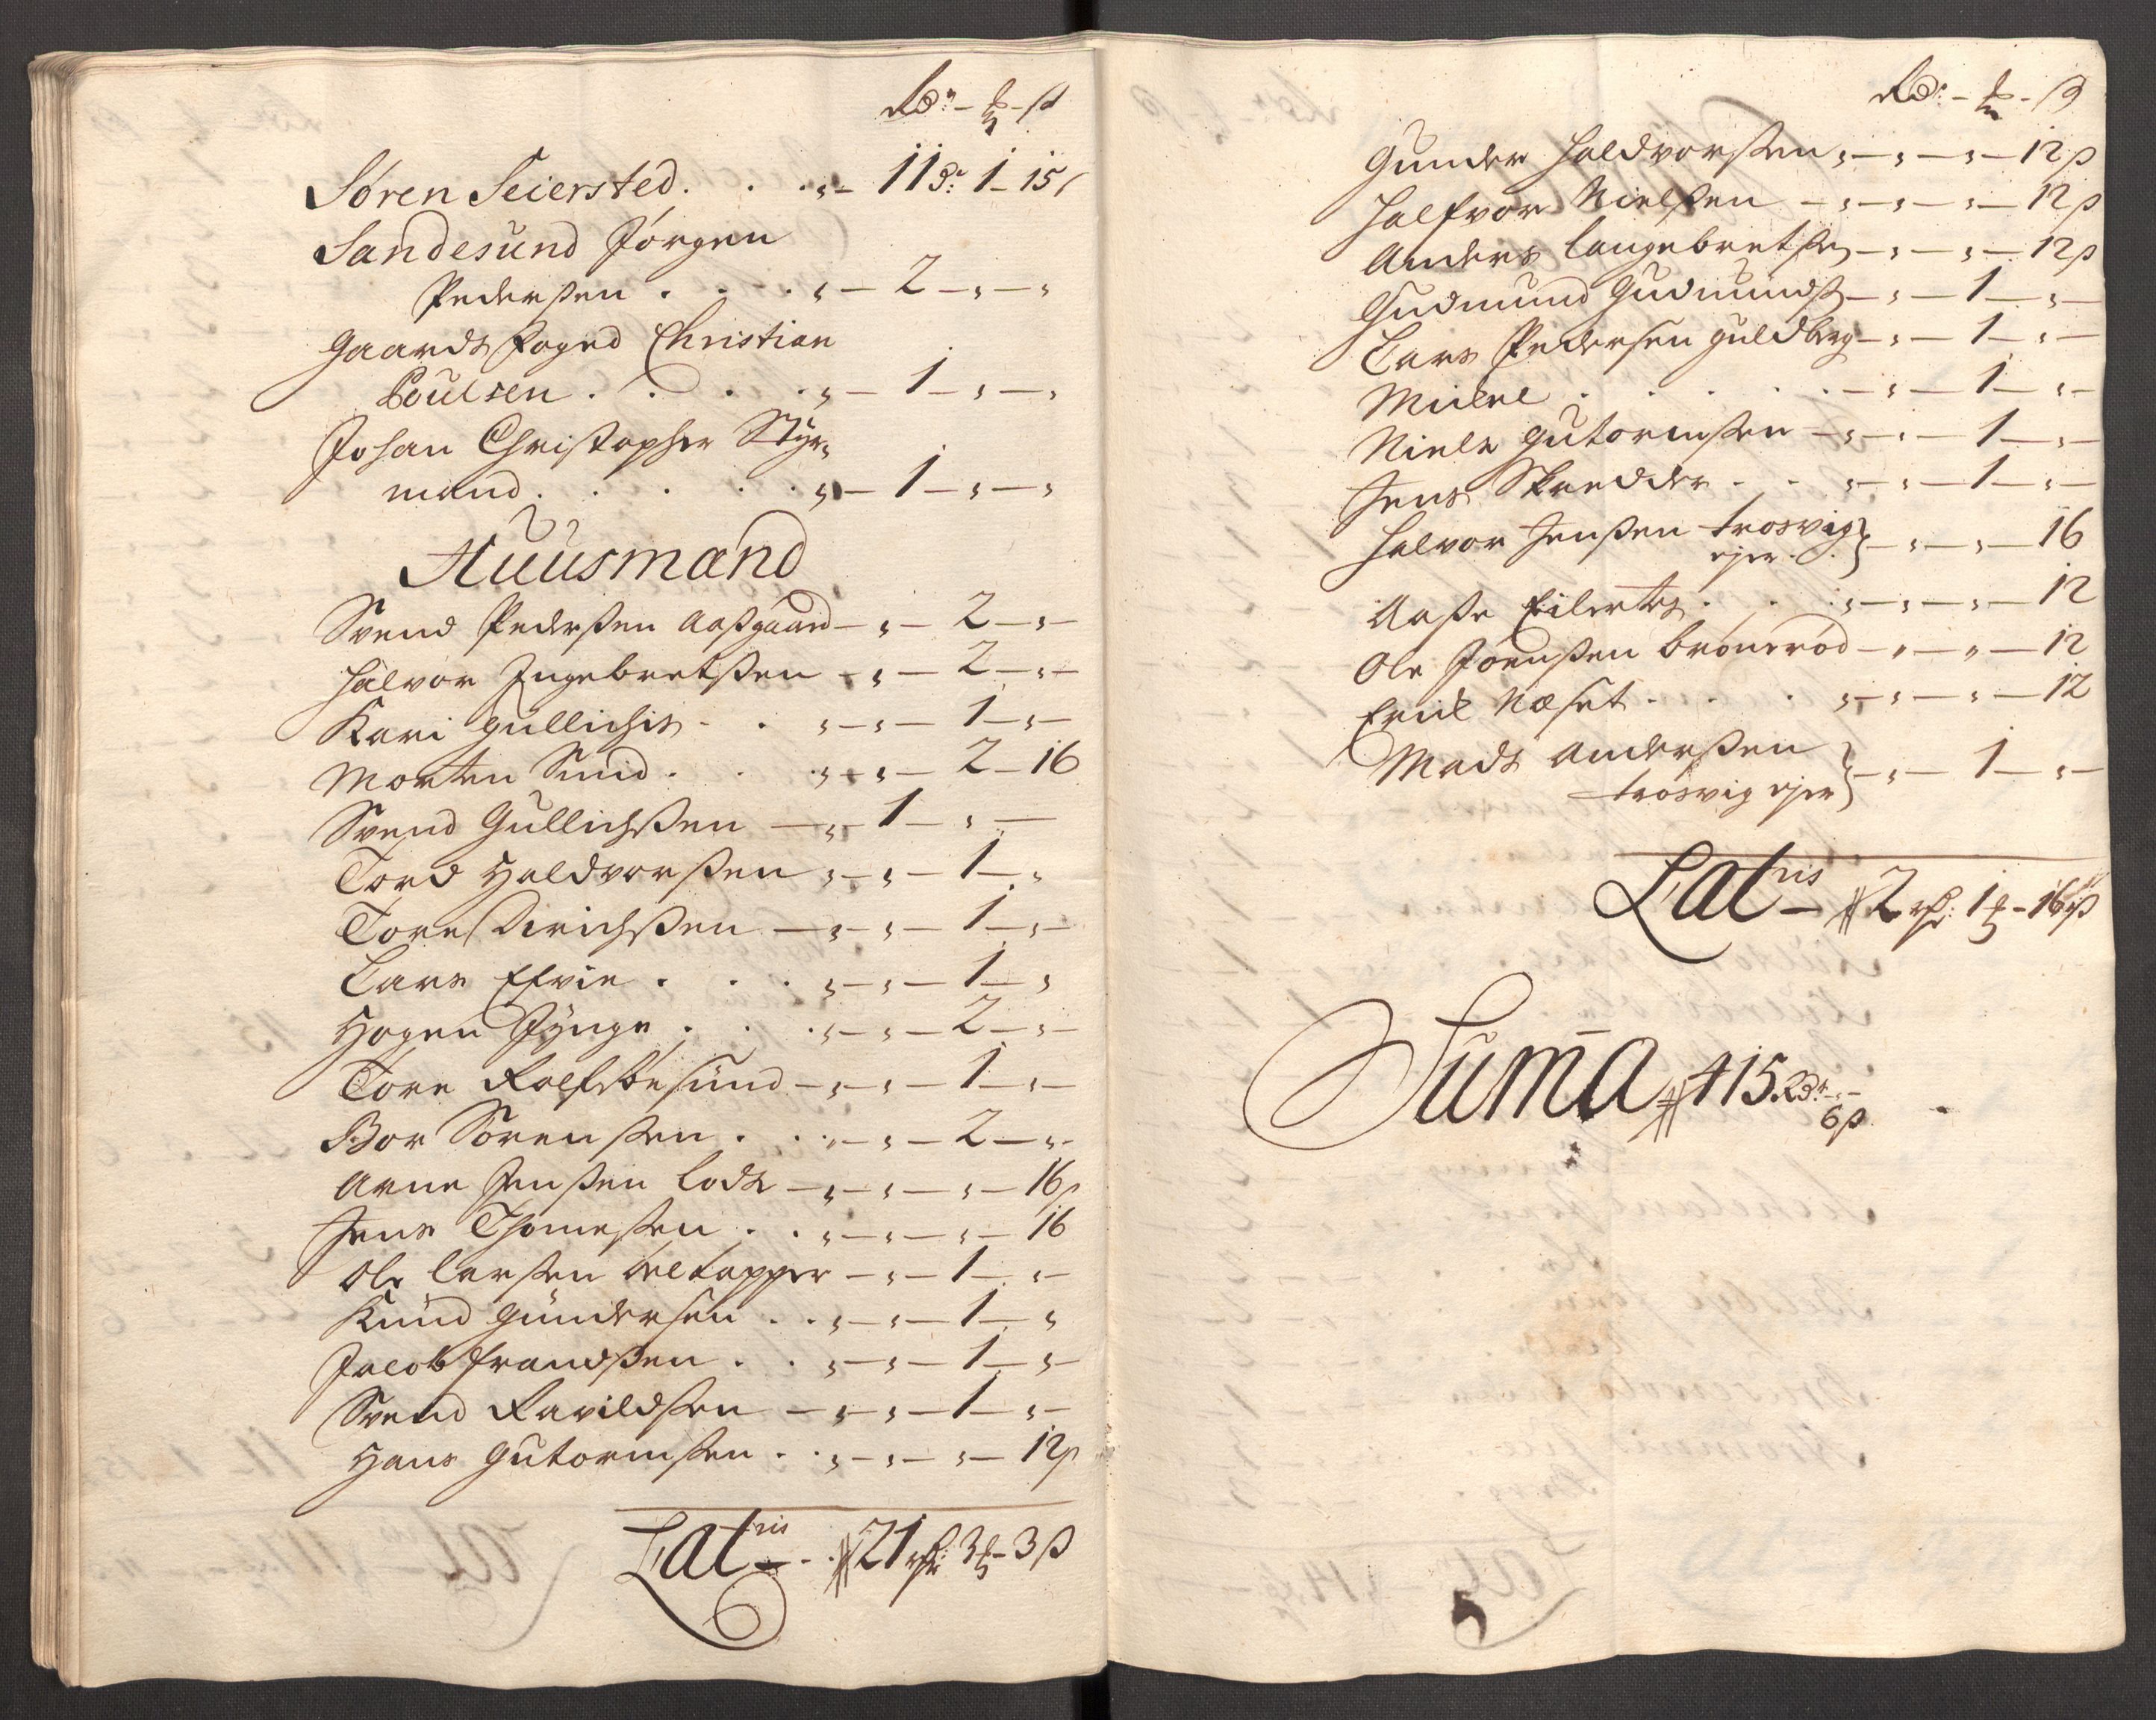 Rdr – ß
Søren Seiersted. . . „ – 11dr 1 – 15
Sandesund Jörgen
Pedersen . . . „ – 2 – „ – „
Gaards foged Christian
Poulsen . . . . „ – 1 – „ – „
Johan Christopher Styr-
mand . . . . . „ – 1 – „ – „
Huusmænd
Svend Pedersen Aasgaard – „ – 2 – „ –
Halvor Ingebretsen – „ – 2 – „ –
Kari Gullichs . . „ – „ – 1 – „ –
Morten Smid . . „ – „ – 2 – 16
Svend Gullichsen – „ – 1 – „ –
Tord Haldvorsen „ – „ – 1 – „
Tore Dirichsen – „ – „ – 1 – „ –
Lars Efvie . . . „ – „ – 1 – „
Hogen Fynge . . . „ – „ – 2 – „ –
Tore Rolfs sund – „ – „ – 1 – „ –
Bor Sorensen . . „ – „ – 2 – „ –
Arne Jensen Lods – „ – „ – „ – 16 ß
Jens Thomesen . . „ – „ – „ – 16
Ole Larsen Øltapper – „ – 1 – „ –
Knud Gundersen . . „ – „ – 1 – „
Jacob Frandsen . . „ – „ – 1 – „ –
Svend Ravildsen – „ – „ – 1 – „ –
Hans Gutormsen . . „ – „ – „ – 12 ß
Latris – . 21 rdr 3 – 3 ß
Rdr – ß
Gunder Haldvorsen „ – „ – „ – 12 ß
Halfvor Nielsen – „ – „ – „ – 12 ß
Anders Langebretsen – „ – „ – 12 ß
Gudmund Gudmunds – „ – 1 – „ –
Lars Pedersen Guldberg – „ – 1 – „ –
Mickel . . . . . – „ – 1 – „ –
Niels Gutormsen – „ – „ – 1 – „ –
Jens Skredder . . „ – „ – 1 – „ –
Halvor Jensen trosvig
ejer . . } – „ – „ – 16
Aase Eilerts . . . „ – „ – „ – 12
Ole Joensen brönerød – „ – „ – 12
Erick Næset . . . „ – „ – „ – 12
Mads Andersen
trosvig ejer } – „ – 1 – „ –
Latris – 2 rdr: 1 – 16 ß
Suma 415 Rdr – „ –
6 ß